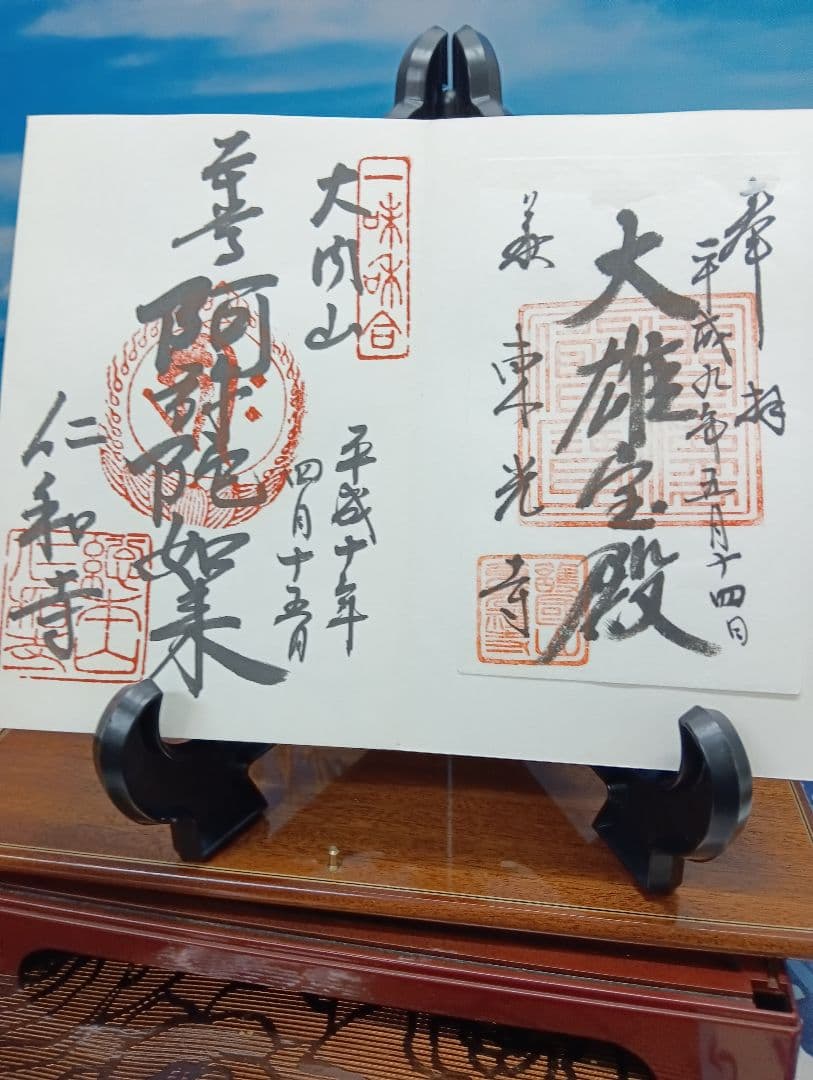 奉拝
平成九年五月十四日
大雄宝殿
萩 東光寺
一味和合
大内山
平成十年
四月十五日
本尊
阿弥陀如来
仁和寺
總本山
仁和寺